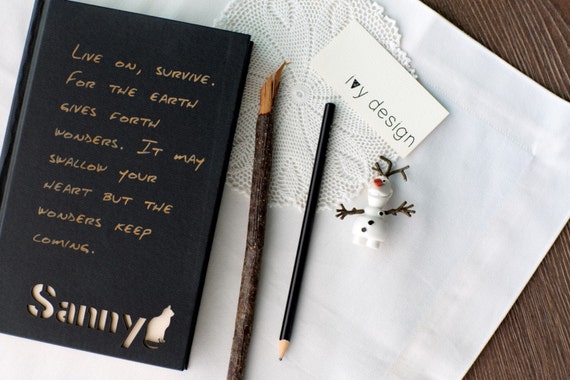 LIVE ON, SURVIVE.
FOR THE EARTH
GIVES FORTH
WONDERS. IT MAY
SWALLOW YOUR
HEART BUT THE
WONDERS KEEP
COMING.
Sanny
Ivy design